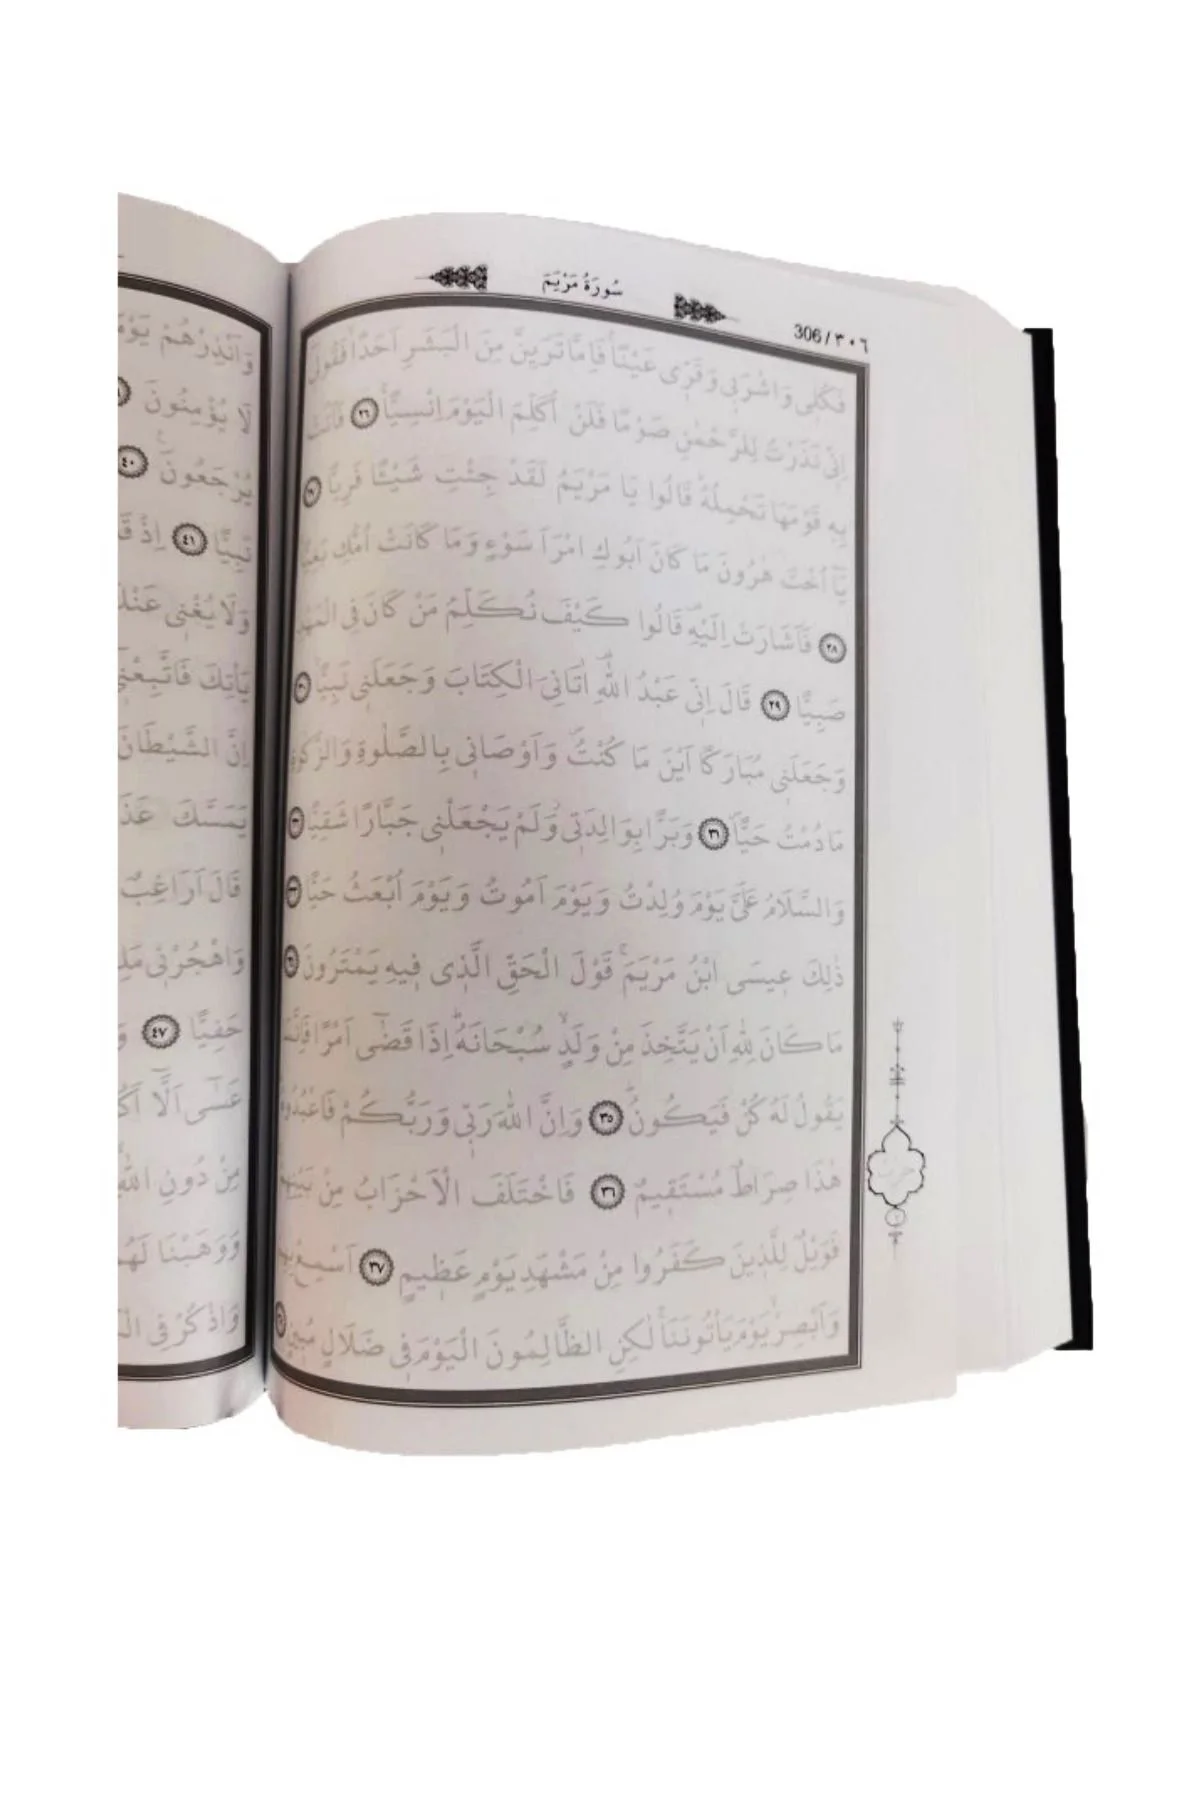 سُورَةُ مَرْيَمَ
306 / ٣٠٦
فَكُلٖى وَاشْرَبٖى وَقَرّٖى عَيْنًاۚ فَاِمَّا تَرَيِنَّ مِنَ الْبَشَرِ اَحَدًاۙ فَقُولٖٓى
اِنّٖى نَذَرْتُ لِلرَّحْمٰنِ صَوْمًا فَلَنْ اُكَلِّمَ الْيَوْمَ اِنْسِيًّاۚ ٢٦ فَاَتَتْ
بِهٖ قَوْمَهَا تَحْمِلُهُؕ قَالُوا يَا مَرْيَمُ لَقَدْ جِئْتِ شَيْـًٔا فَرِيًّا
يَٓا اُخْتَ هٰرُونَ مَا كَانَ اَبُوكِ امْرَاَ سَوْءٍ وَمَا كَانَتْ اُمُّكِ بَغِيًّا
٢٨ فَاَشَارَتْ اِلَيْهِؕ قَالُوا كَيْفَ نُكَلِّمُ مَنْ كَانَ فِى الْمَهْدِ
صَبِيًّا ٢٩ قَالَ اِنّٖى عَبْدُ اللّٰهِؕ اٰتَانِىَ الْكِتَابَ وَجَعَلَنٖى نَبِيًّاۙ ٣٠
وَجَعَلَنٖى مُبَارَكًا اَيْنَ مَا كُنْتُࣕ وَاَوْصَانٖى بِالصَّلٰوةِ وَالزَّكٰوةِ
مَا دُمْتُ حَيًّاۙ ٣١ وَبَرًّا بِوَالِدَتٖىؗ وَلَمْ يَجْعَلْنٖى جَبَّارًا شَقِيًّا
وَالسَّلَامُ عَلَىَّ يَوْمَ وُلِدْتُ وَيَوْمَ اَمُوتُ وَيَوْمَ اُبْعَثُ حَيًّا
ذٰلِكَ عٖيسَى ابْنُ مَرْيَمَۚ قَوْلَ الْحَقِّ الَّذٖى فٖيهِ يَمْتَرُونَ
مَا كَانَ لِلّٰهِ اَنْ يَتَّخِذَ مِنْ وَلَدٍۙ سُبْحَانَهُؕ اِذَا قَضٰٓى اَمْرًا فَاِنَّمَا
يَقُولُ لَهُ كُنْ فَيَكُونُؕ ٣٥ وَاِنَّ اللّٰهَ رَبّٖى وَرَبُّكُمْ فَاعْبُدُوهُؕ
هٰذَا صِرَاطٌ مُسْتَقٖيمٌ ٣٦ فَاخْتَلَفَ الْاَحْزَابُ مِنْ بَيْنِهِمْۚ
فَوَيْلٌ لِلَّذٖينَ كَفَرُوا مِنْ مَشْهَدِ يَوْمٍ عَظٖيمٍ ٣٧ اَسْمِعْ بِهِمْ
وَاَبْصِرْۙ يَوْمَ يَأْتُونَنَا لٰكِنِ الظَّالِمُونَ الْيَوْمَ فٖى ضَلَالٍ مُبٖينٍ
وَاَنْذِرْهُمْ يَوْمَ
لَا يُؤْمِنُونَ
يُرْجَعُونَࣖ ٤٠
نَبِيًّا ٤١ اِذْ
وَلَا يُغْنٖى عَنْكَ
يَأْتِكَ فَاتَّبِعْنٖٓى
اِنَّ الشَّيْطَانَ
يَمَسَّكَ
قَالَ اَرَاغِبٌ
وَاهْجُرْنٖى
حَفِيًّا ٤٧
عَسٰٓى اَلَّٓا
مِنْ دُونِ اللّٰهِۙ
وَوَهَبْنَا لَهُمْ
وَاذْكُرْ فِى